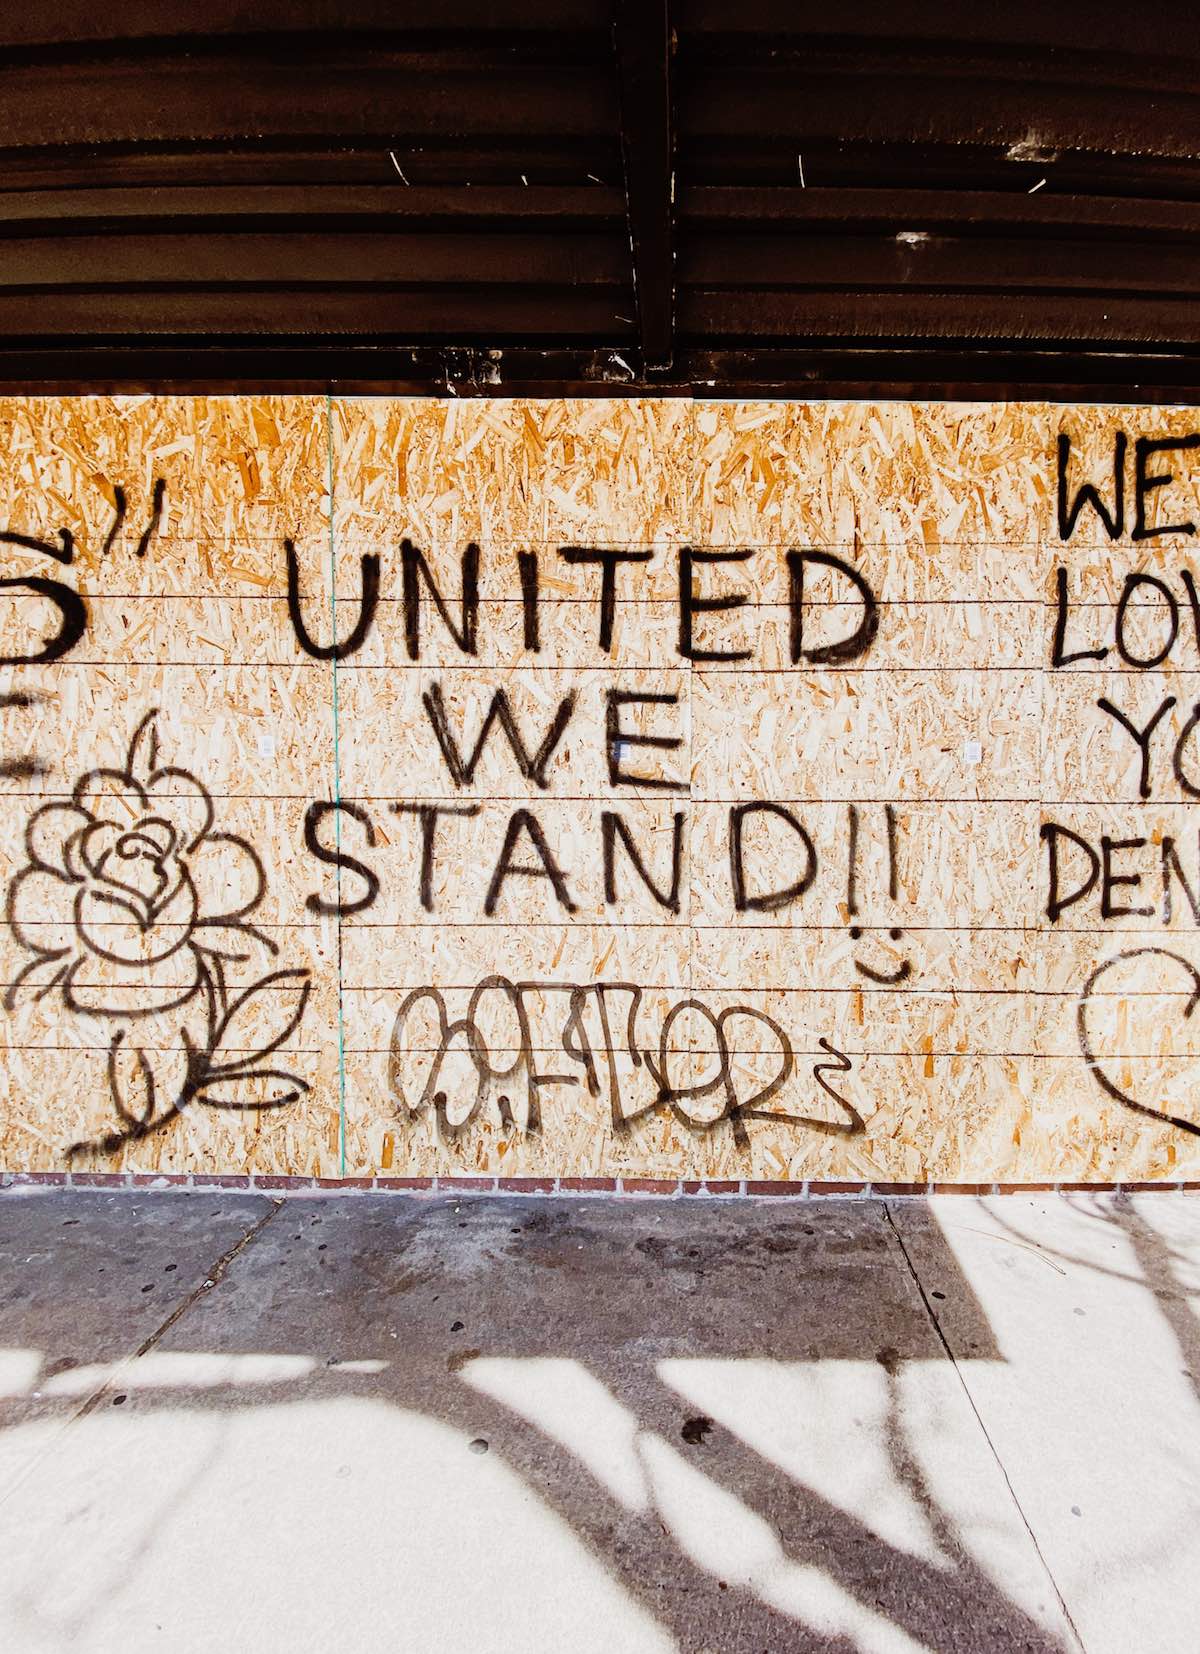 S"
UNITED
WE
STAND!!
WE
LOV
YO
DEN